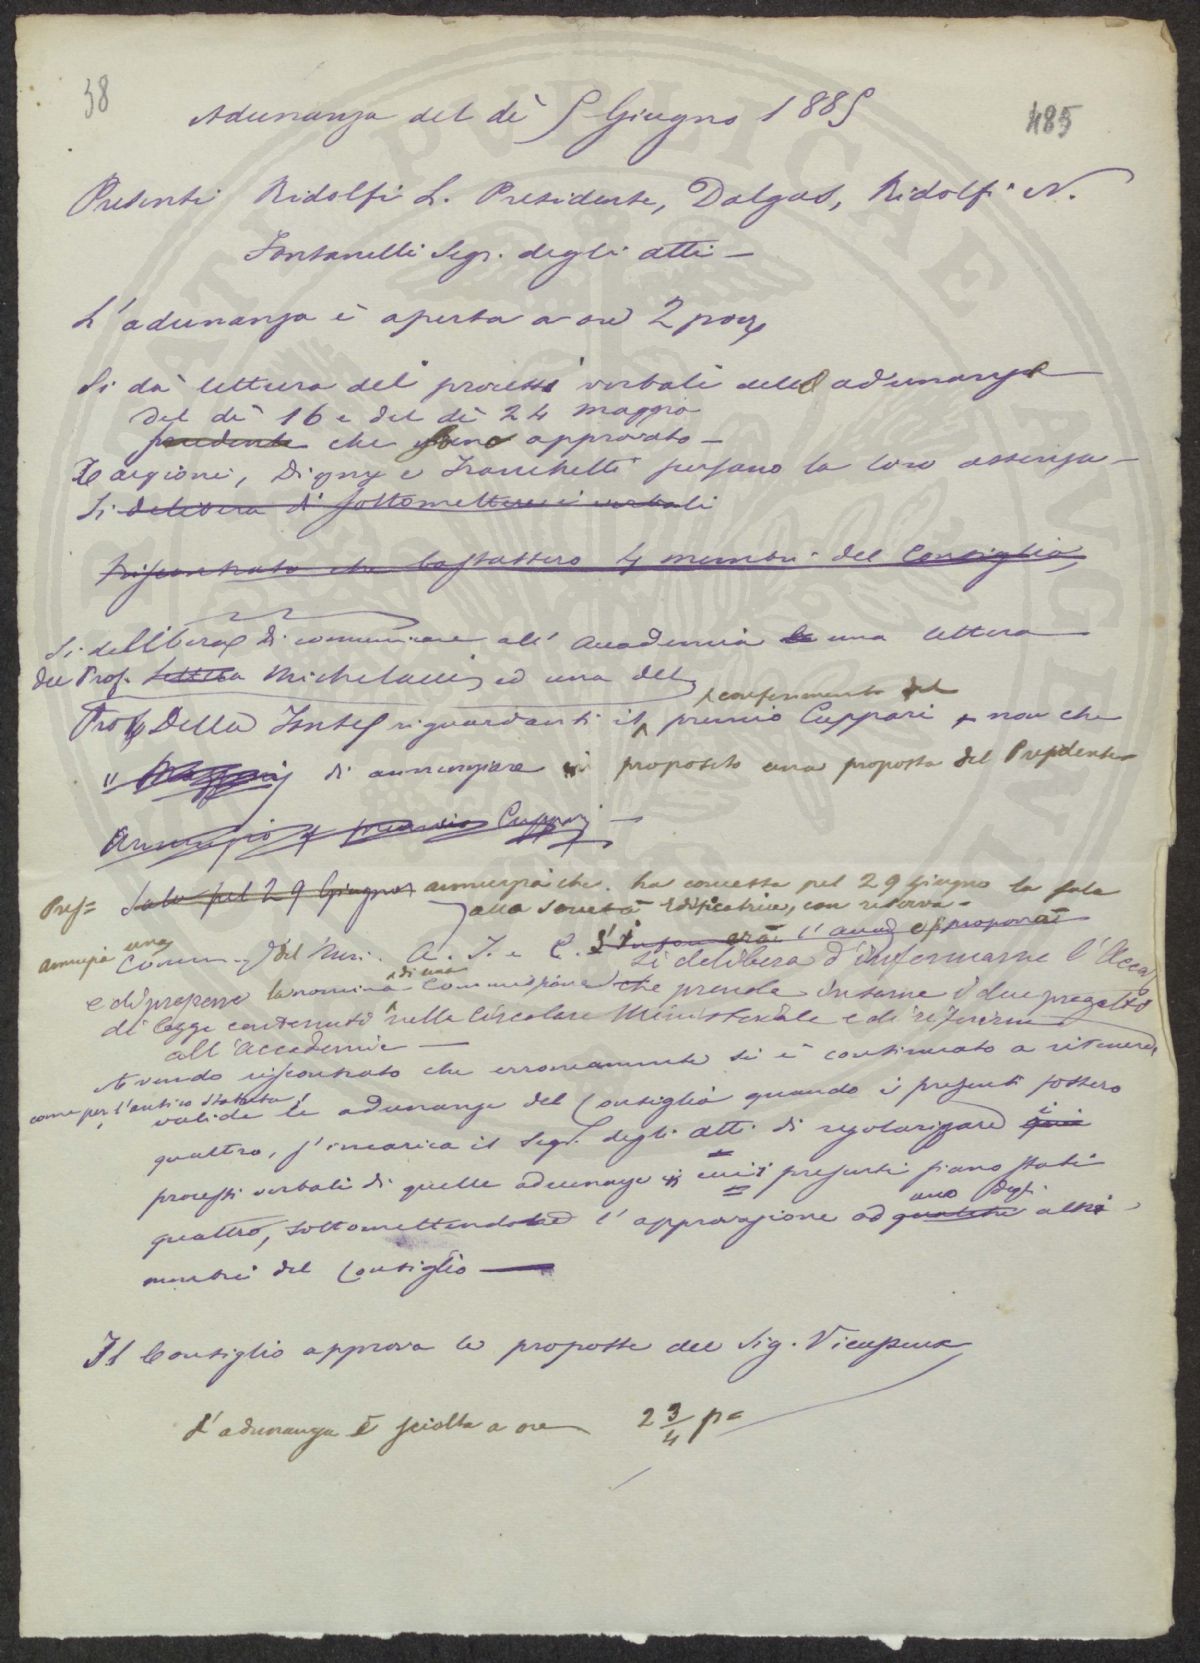 38
485
Adunanza del dì 5 Giugno 1885
Presenti Ridolfi L. Presidente, Dalgas, Ridolfi N.
Fontanelli Segr. degli atti —
L'adunanza è aperta a ore 2 pom
Si dà lettura dei processi verbali delle adunanze
del dì 16 e del dì 24 maggio
precedente che sono approvato —
Cargioni, Digny e Franchetti scusano la loro assenza —
Si delibera di sottomettere i verbali
Riscontrato che bastassero 4 membri del Consiglio,
Si delibera di comunicare all' Accademia la una lettera
del Prof. lettera Michelacci, ed una del
Prof. Della Fonte riguardanti il conferimento del premio Cuppari, non che
di annunziare in proposito una proposta del Presidente
Annunzio premio Cuppari —
Pres= Sala pel 29 Giugno annunzia che ha concessa pel 29 Giugno la sala
alla Società Edificatrice, con riserva —
annunzia una Comun. del Min. A. I. e C. Si informerà l'Accad e si proporrà
Si delibera d'informarne l'Accad
e di proporre la nomina di una Commissione che prenda in esame i due progetti
di legge contenuti nella Circolare Ministeriale e di riferirne
all'Accademia —
Avendo riscontrato che erroneamente si è continuato a ritenere
come per l'antico statuto,
valide le adunanze del Consiglio quando i presenti fossero
quattro, s'incarica il Segr. degli Atti di regolarizzare i
processi verbali di quelle adunanze in cui i presenti siano stati
quattro, sottomettendone l'approvazione ad uno degli altri
membri del Consiglio —
Il Consiglio approva le proposte del Sig. Vicepres
L'adunanza è sciolta a ore 2 3/4 p=